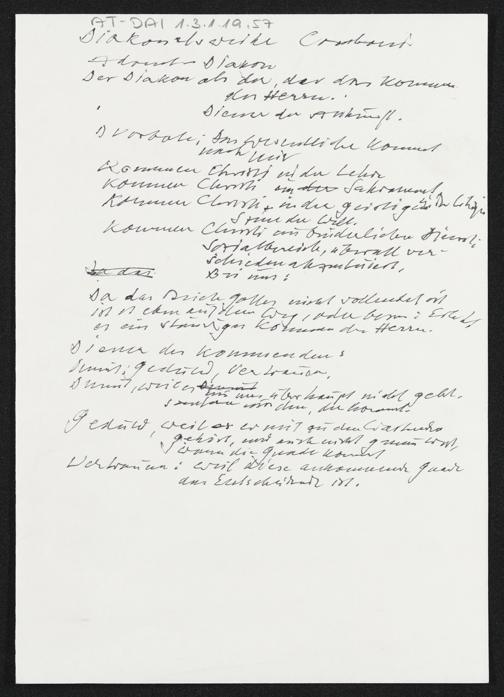 AT-DAI 1.3.1.19.57
Diakonatsweihe
Advent – Diakon
Der Diakon als der, der das Kommen
des Herrn.
Diener der Ankunft.
Das Wesentliche kommt
nach mir
Kommen Christi in der Lehre
Kommen Christi in der Sakrament
Kommen Christi in der geistigen
Kommen Christi im brüderlichen Dienst:
Sozialbereich, überall ver-
schieden akzentuiert,
Bei uns:
Da das
Da das Reich Gottes nicht vollendet ist
ist es eben auf dem Weg, oder besser:
es ein ständiges Kommen des Herrn.
Diener des Kommenden:
Demut, Geduld, Vertrauen,
Demut, weil es Demut
um uns überhaupt nicht geht.
sondern um den, der kommt.
Geduld, weil er
gehört, und auch nicht genau weiß,
wann die Gnade kommt
Vertrauen: weil diese ankommende Gnade
das Entscheidende ist.